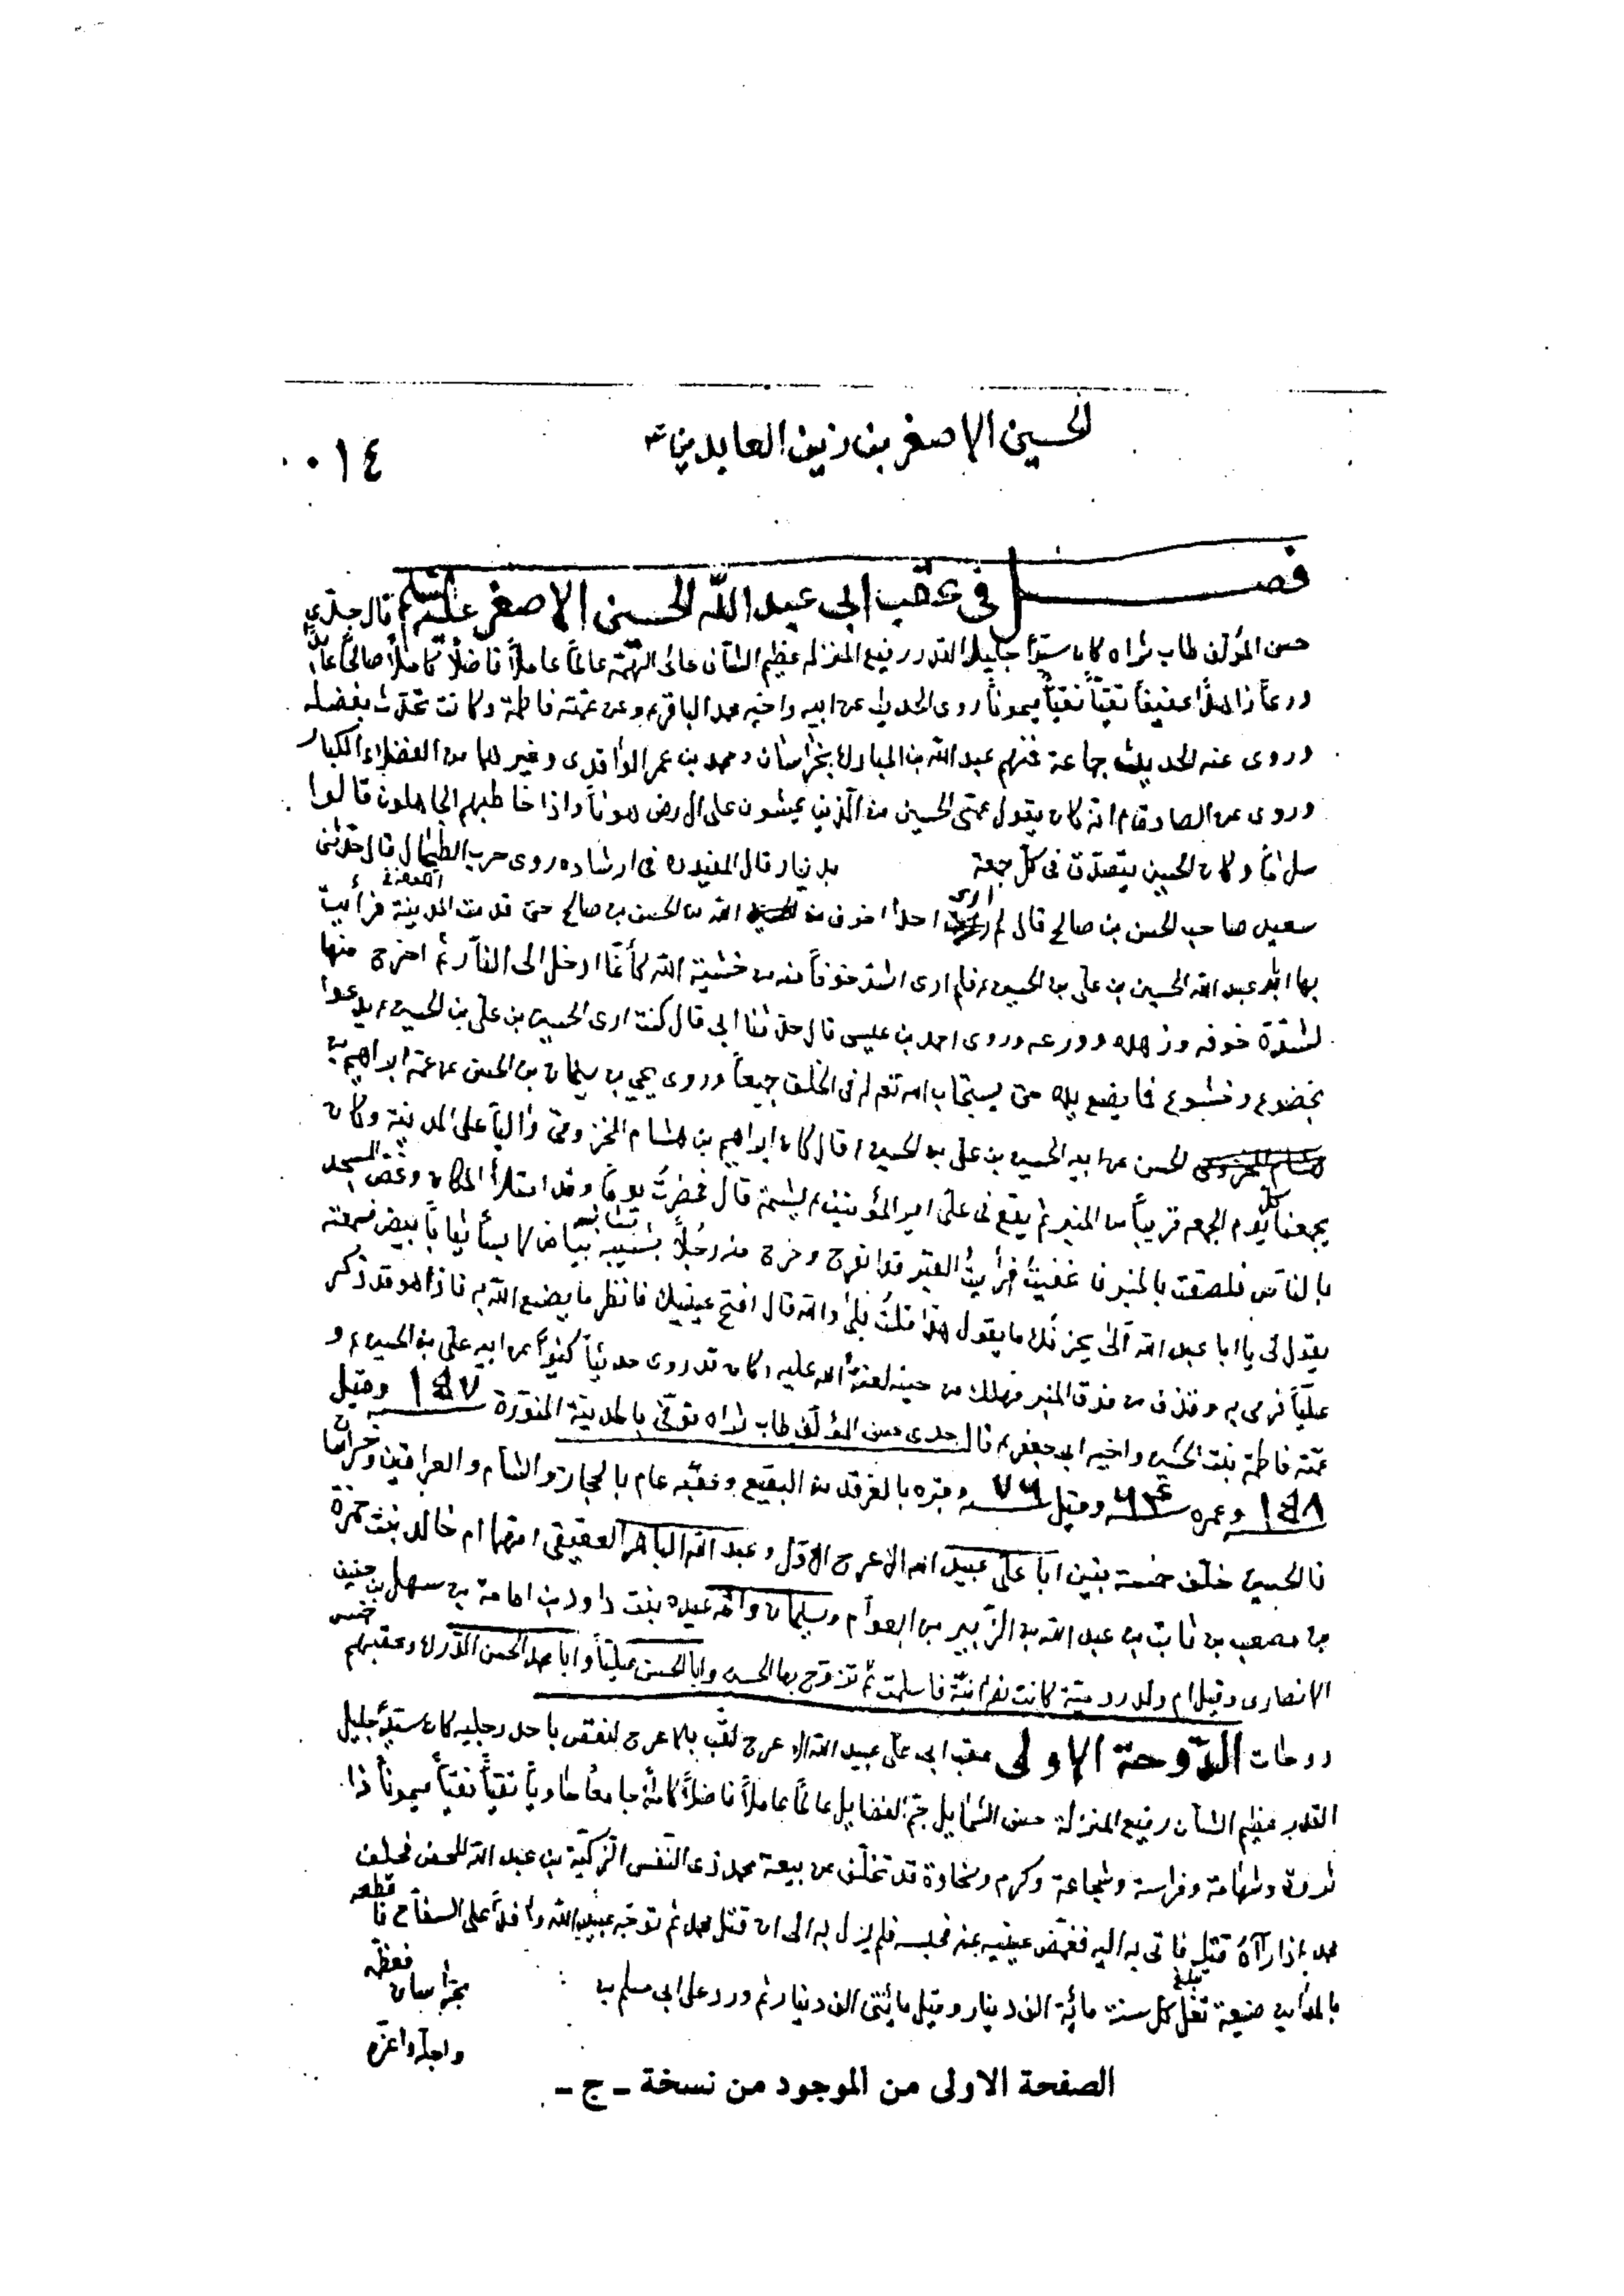 الحسين الاصغر بن زين العابدين ع
٠١٤
فصل في عقب ابى عبد الله الحسين الاصغر عليه السلام قال جدّي
حسن المؤلف طاب ثراه كان سيّداً جليل القدر رفيع المنزله عظيم الشأن عالى الهمّة عالماً عاملاً فاضلاً كاملاً صالحاً عابداً
ورعاً زاهداً عفيفاً تقيّاً نقيّاً ميموناً روى الحديث عن ابيه واخيه محمد الباقر ع وعن عمّته فاطمة وكانت تحدّث بفضله
وروى عنه الحديث جماعة فمنهم عبد الله بن المبارك بخراسان ومحمد بن عمر الواقدى وغيرهما من الفضلاء الكبار
وروى عن الصادق ع انه كان يقول عمّى الحسين من الّذين يمشون على الارض هوناً واذا خاطبهم الجاهلون قالوا
سلاماً وكان الحسين يتصدّق فى كلّ جمعة بدينار قال المفيد ره فى ارشاده روى حرب الطحّال قال حدّثنى
سعيد صاحب الحسن بن صالح قال لم ارى احداً اخوف من الله من الحسن بن صالح حتى قدمت المدينة فرأيت
بها ابا عبد الله الحسين بن على بن الحسين ع فلم ارى اشدّ خوفاً منه من خشية الله كأنّما ادخل الى النّار ثم اخرج منها
لشدّة خوفه وزهده وورعه وروى احمد بن عيسى قال حدثنا ابى قال كنت ارى الحسين بن على بن الحسين ع يدعوا
بخضوع وخشوع فما يضع يده حتى يستجاب له فى الخلق جميعاً وروى يحيى بن سليمان بن الحسين عن عمّه ابراهيم بن
الحسن عن ابيه الحسين بن على بن الحسين ع قال كان ابراهيم بن هشام المخزومى والياً على المدينة وكان
يجمعنا كلّ يوم الجمعه قريباً من المنبر ثم يقع فى علىّ امير المؤمنين ع يشتمه قال فحضرت يوماً وقد امتلأ المكان وغصّ المسجد
بالناس فلصقت بالمنبر فاغفيت فرأيت القبر قد انفرج وخرج منه رجلاً بياض لابساً ثياباً بيض فسمعته
يقول لى يا ابا عبد الله ألا يحزنك ما يقول هذا قلت بلى والله قال افتح عينيك فانظر ما يصنع الله به فاذا هو قد ذكر
عليّاً فرمى به وقذف من فوق المنبر فهلك من حينه لعنة الله عليه وكان قد روى حديثاً كثيراً عن ابيه على بن الحسين ع و
عمّته فاطمة بنت الحسين واخيه ابى جعفر ع قال جدى حسن المؤلف طاب ثراه توفّى بالمدينة المنوّرة ١٥٧ وقيل
١٥٨ وعمره ٦٤ وقيل ٧٦ وقبره بالغرقد من البقيع وعقبه عام بالحجاز والشام والعراقين وخراسان
فالحسين خلّف خمسة بنين ابا على عبيد الله الاعرج الاوّل وعبد الله الباهر العقيقى امّهما ام خالد بنت حمزة
بن مصعب بن ثابت بن عبد الله بن الزّبير بن العوّام وسليمان وامّه عبده بنت داود بن امامة بن سهل بن حنيف
الانصارى وقيل ام ولد روميّة كانت نصرانيّة فاسلمت ثمّ تزوّج بها الحسين وابا الحسين عليّاً وابا محمد الحسن الدرك وعقبهم خمس
دوحات الدّوحة الاولى عقب ابى على عبيد الله الاعرج لقّب بالاعرج لنقص باحد رجليه كان سيّداً جليل
القدر عظيم الشأن رفيع المنزلة حسن الشمايل جمّ الفضايل عالماً عاملاً فاضلاً كاملاً جامعاً حاوياً تقيّاً نقيّاً ميموناً ذا
ثروة وشهامة وفراسة وشجاعة وكرم وسخاوة قد تخلّف عن بيعة محمد ذى النّفس الزّكيّة بن عبد الله المحض فحلف
محمد اذا رآه قتله فاتى به اليه فغمّض عينيه عنه فحبسه فلم يزل به الى ان قتل محمد ثم توجّه عبيد الله وافداً على السفّاح فاقطعه
بالمداين ضيعة تغلّ كل سنت مائة الف دينار وقيل مائتى الف دينار ثم ورد على ابى مسلم بخراسان فعظّمه
واجلّه واعزّه
الصفحة الاولى من الموجود من نسخة ـ ج ـ